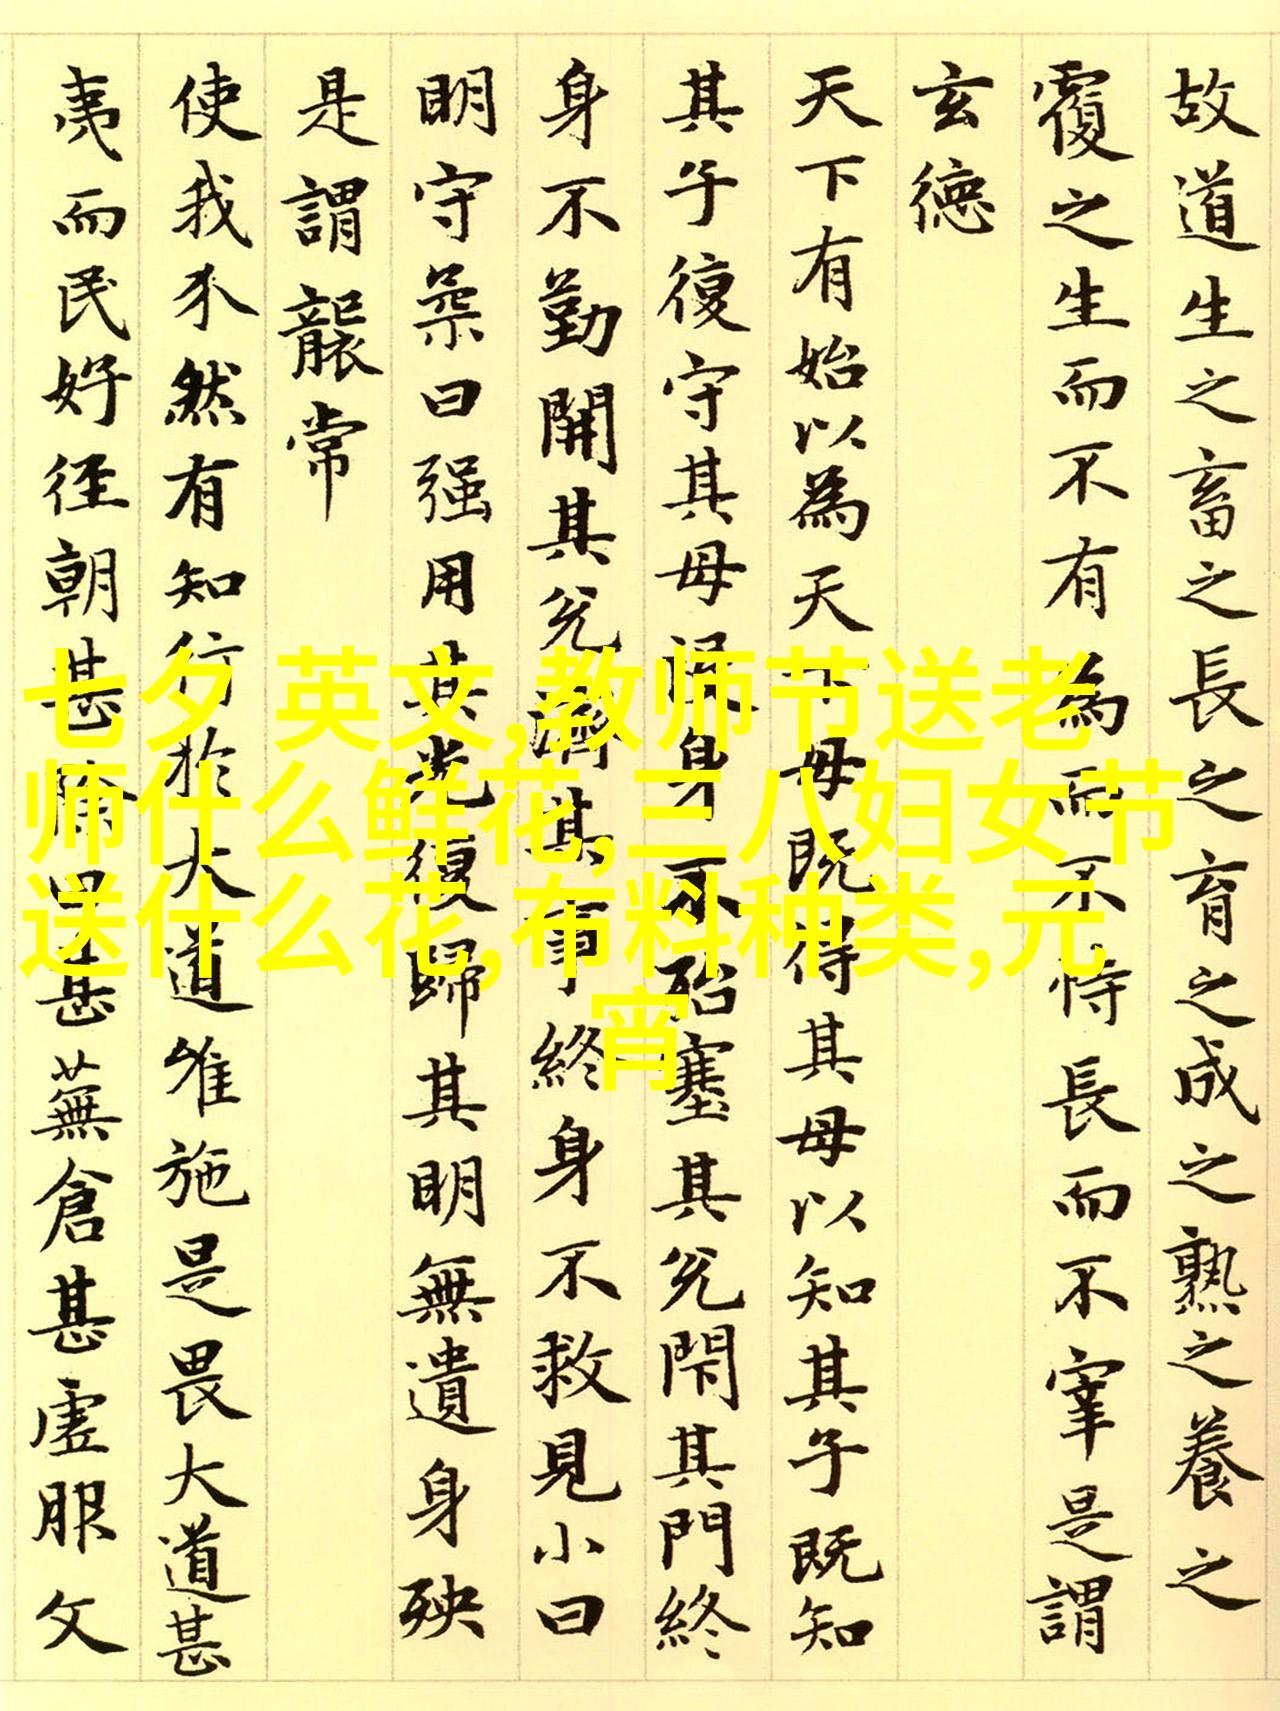 故道生之畜之長之育之成之熟之養之
覆之生而不有為而不恃長而不宰是謂
玄德
天下有始以為天下母既得其母以知其子既知
其子復守其母没身不殆塞其兊閇其門終
身不勤開其兊濟其事終身不救見小曰
明守柔曰强用其光復歸其明無遺身殃
是謂襲常
使我介然有知行於大道唯施是畏大道甚
夷而民好徑朝甚除田甚蕪倉甚虛服文
七夕 英文,教师节送老
师什么鲜花,三八妇女节
送什么花,布料种类,元
宵